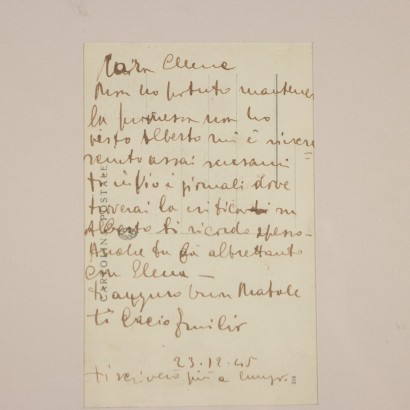 Cara Elena
Non ho potuto mantener
la promessa non ho
visto Alberto mi è rincre
sciuto assai scusami
Ti invio i giornali dove
troverai la critica su
Alberto ti ricordo spesso
Anche tu fa altrettanto
con Elena —
Ti auguro buon Natale
ti bacio Emilio
23.12.45
ti scriverò più a lungo.
CARTOLINA POSTALE